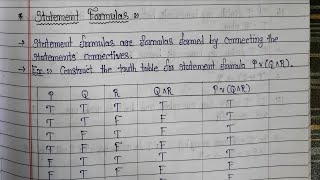 * Statement Formulas :-
→ Statement formulas are formulas formed by connecting the
statements connectives.
→ Ex:- Construct the truth table for statement formula P∨(Q∧R).
P Q R Q∧R P∨(Q∧R)
T T T T T
T T F F T
T F T F T
T F F F T